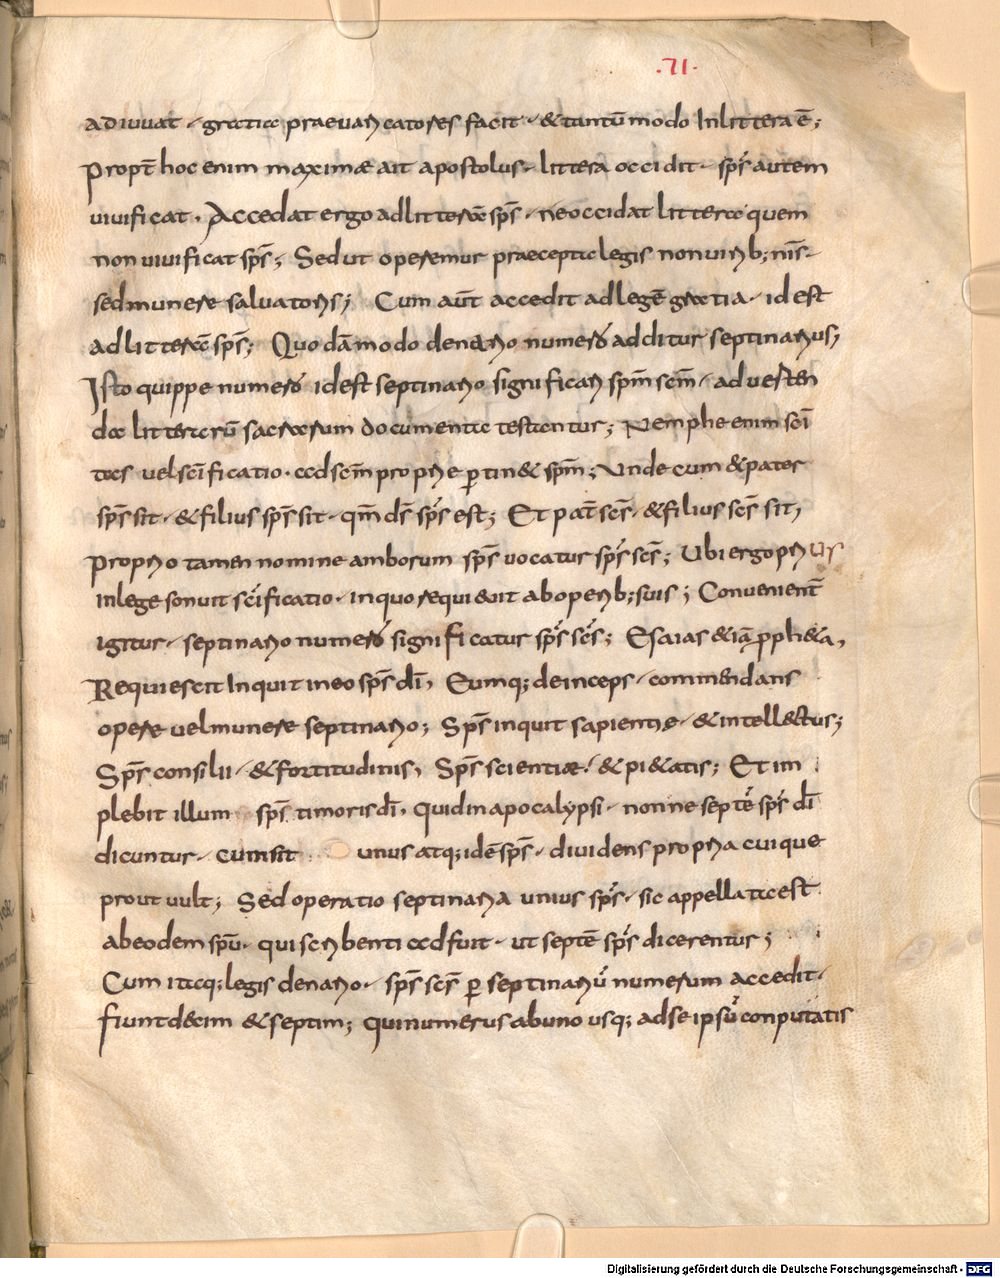 .71.
adiuuat · gratia praeuaricatores facit · & tantū modo In littera ē;
Propt̄ hoc enim maximæ ait apostolus · littera occidit · sp̄s autem
uiuificat · Accedat ergo ad litterā sp̄s · ne occidat littera quem
non uiuificat sp̄s; Sed ut operemur praecepta legis non uirib; nr̄is ·
sed munere saluatoris; Cum aūt accedit ad legē gratia · id est
ad litterā sp̄s; Quodā modo denario numero additur septinarius;
Isto quippe numero id est septinario significari sp̄m sc̄m · aduerten
da litterarū sacrarum documenta testantur; Nemphe enim sc̄i
tas uel sc̄ificatio · ad sc̄m propriæ ꝑtin& sp̄m; Vnde cum & pater
sp̄s sit · & filius sp̄s sit · qm̄ ds̄ sp̄s est; Et pat̄ sc̄s · & filius sc̄s sit,
Proprio tamen nomine amborum sp̄s uocatur sp̄s sc̄s; Ubi ergo prius
in lege sonuit sc̄ificatio · in quo requieuit ab operib; suis; Conuenient̄
igitur · septinario numero significatur sp̄s sc̄s; Esaias &iā ꝓph&a,
Requiescit Inquit in eo sp̄s dī, Eumq; deinceps · commendans
opere uel munere septinario; Sp̄s inquit sapientię · & intellectus;
Sp̄s consilii · & fortitudinis, Sp̄s scientiæ · & pi&atis; Et im
plebit illum sp̄s timoris dī, quid in apocalypsi · nonne septē sp̄s dī
dicuntur · cum sit unus atq; idē sp̄s · diuidens propria cuique
prout uult; Sed operatio septinaria unius sp̄s · sic appellata est
ab eodem sp̄u · qui scribenti adfuit · ut septē sp̄s dicerentur;
Cum itaq; legis denario · sp̄s sc̄s ꝑ septinariū numerum accedit ·
fiunt decim & septim; qui numerus ab uno usq; ad se ipsū conputatis
Digitalisierung gefördert durch die Deutsche Forschungsgemeinschaft - DFG